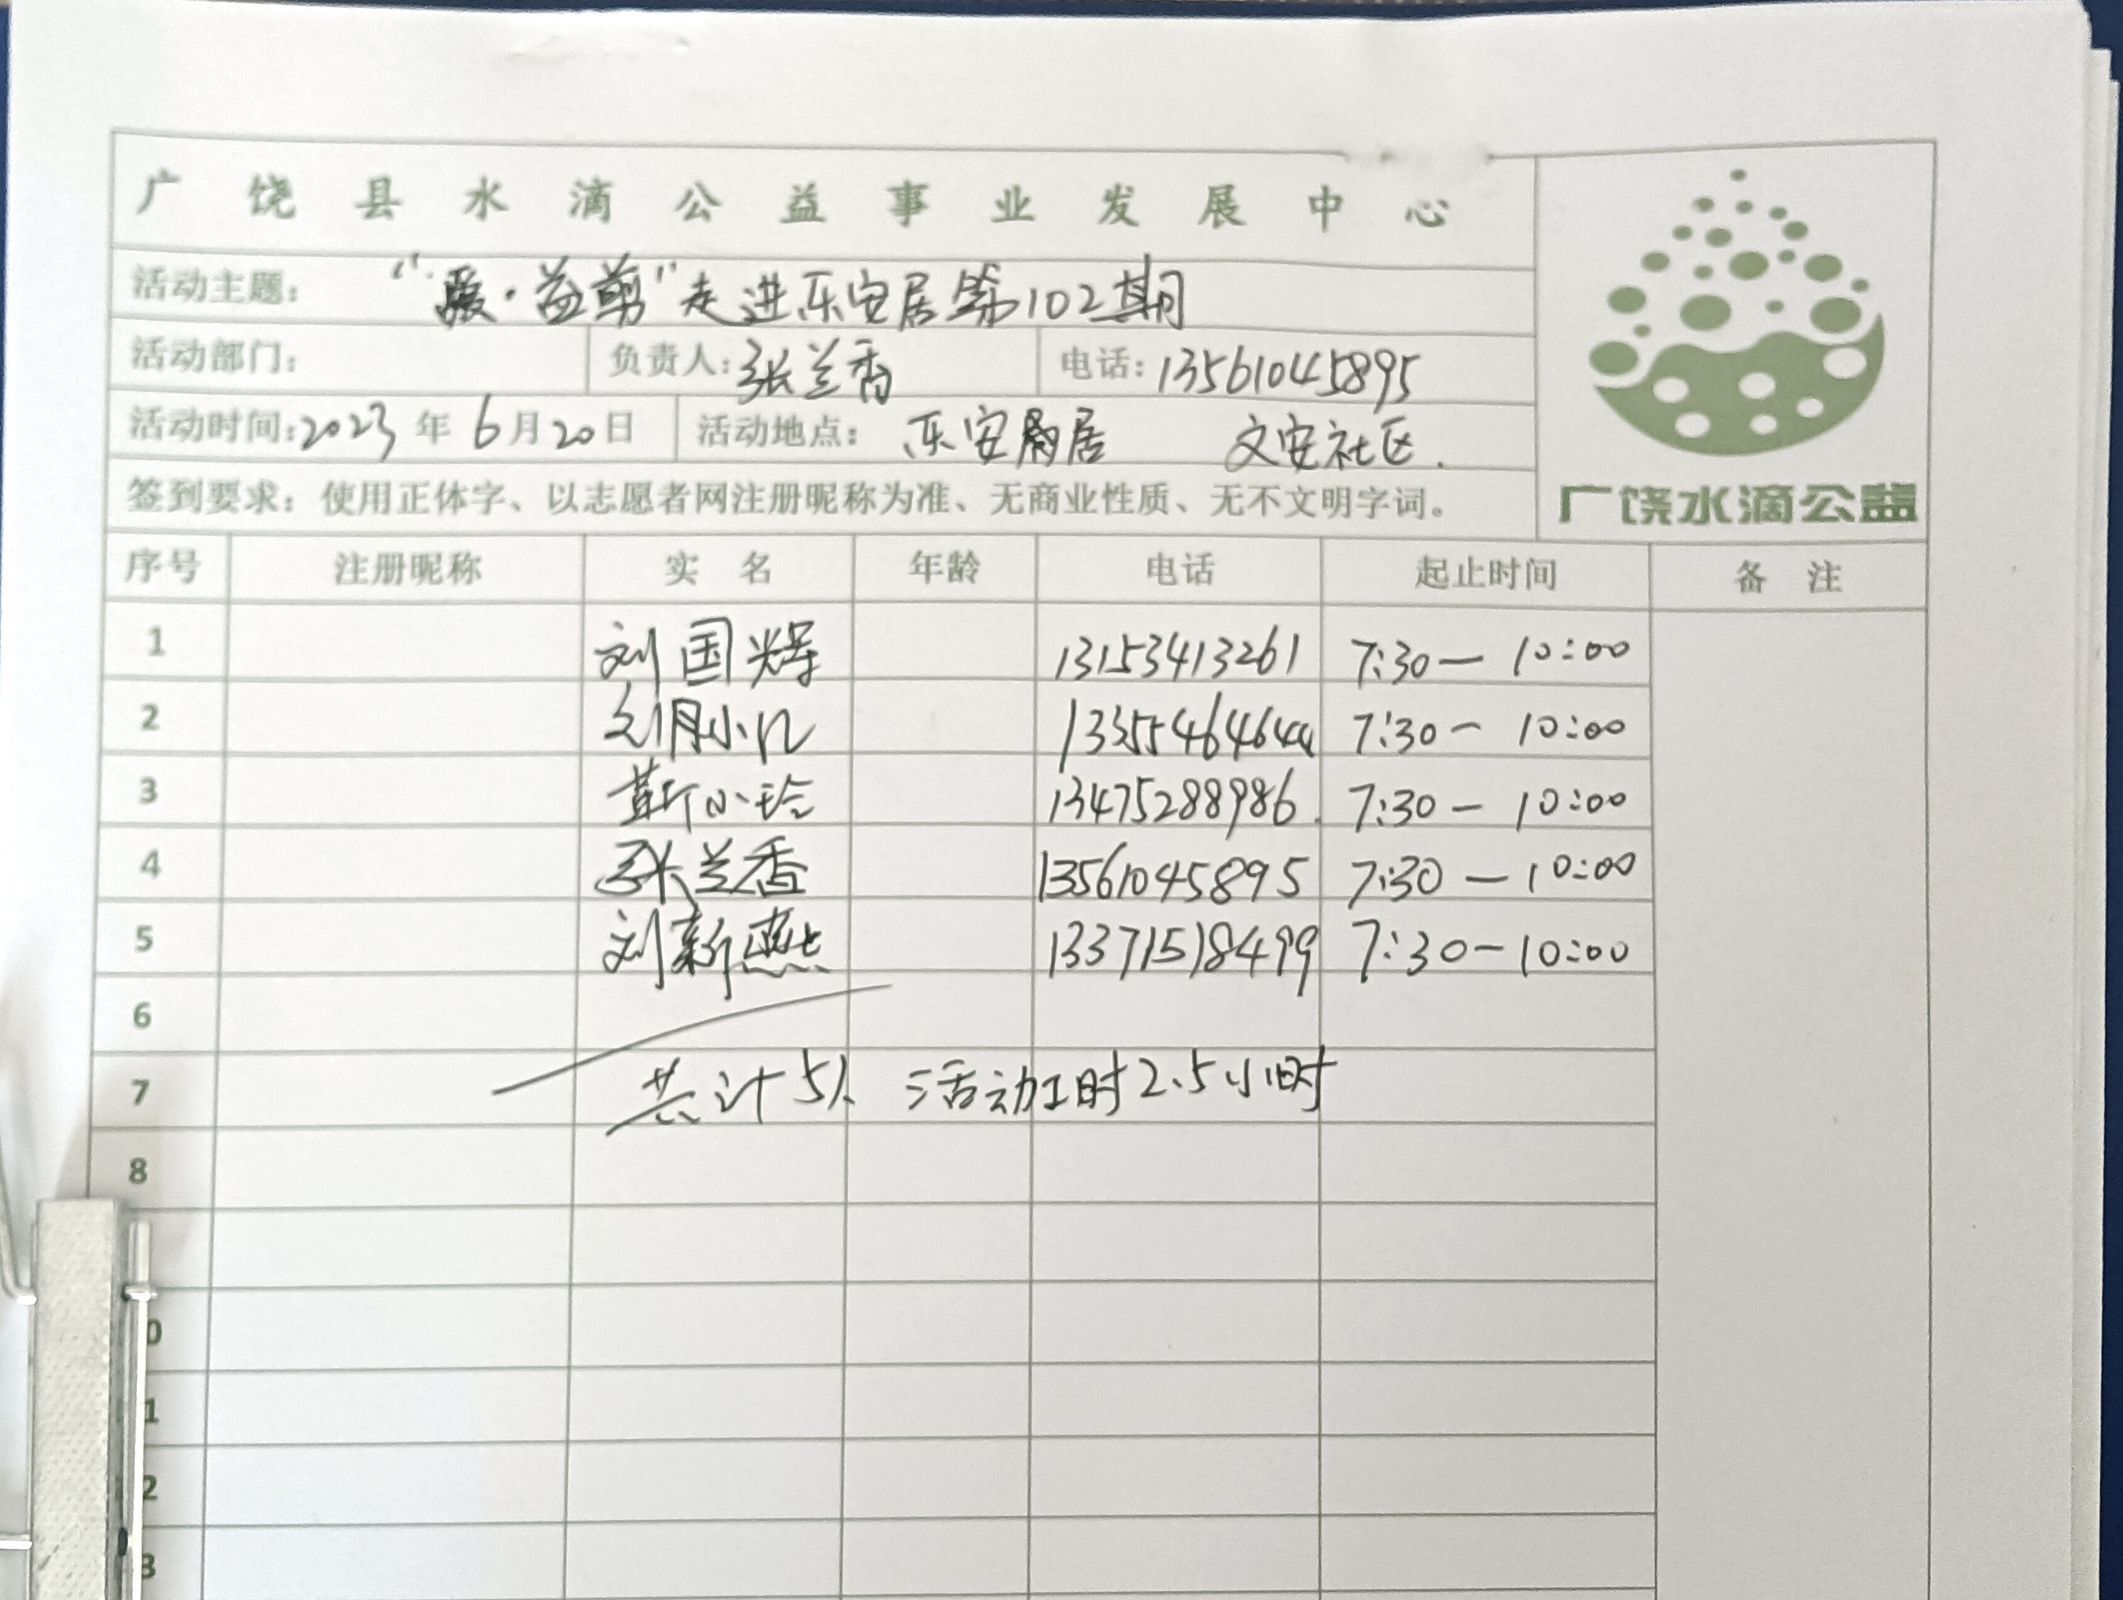 广饶县水滴公益事业发展中心
活动主题: “暖·益剪”走进乐安居第102期
活动部门: 负责人:张兰香 电话:13561045895
活动时间:2023年6月20日 活动地点: 乐安居 文安社区.
签到要求:使用正体字、以志愿者网注册昵称为准、无商业性质、无不文明字词。
广饶水滴公益
序号 注册昵称 实 名 年龄 电话 起止时间 备 注
1 刘国辉 13153413261 7:30—10:00
2 7:30—10:00
3 靳小玲 13475288986 7:30—10:00
4 张兰香 13561045895 7:30—10:00
5 刘新燕 13371518499 7:30—10:00
6
7 共计5人 活动工时2.5小时
8
0
1
2
3